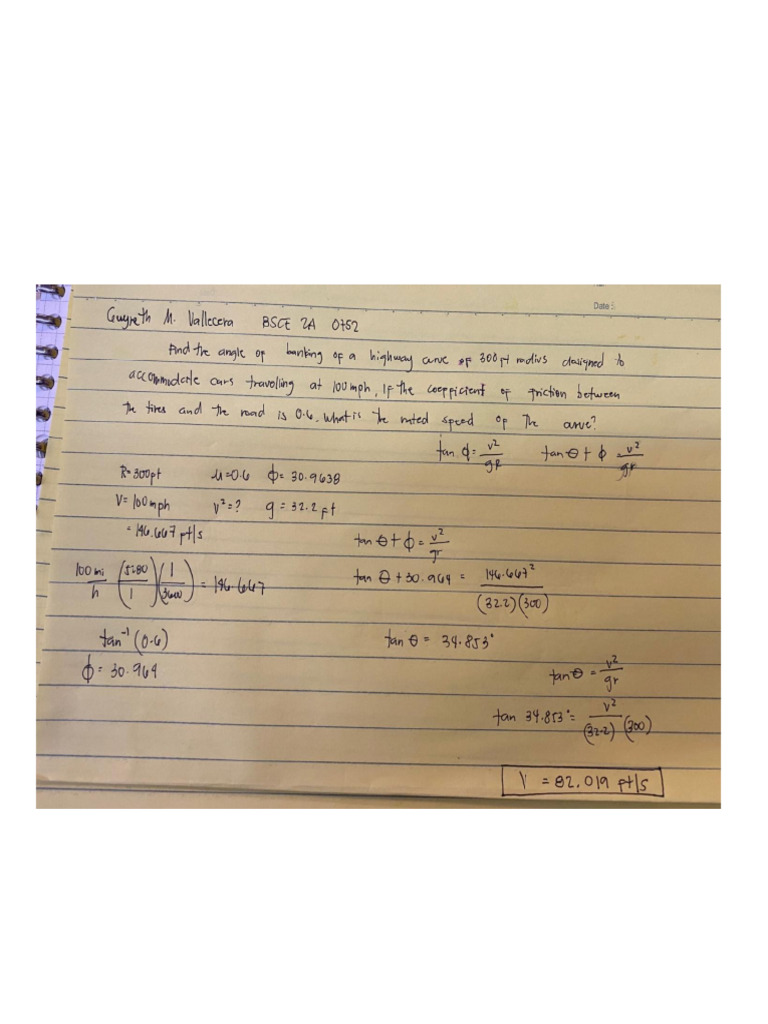 Date:
Guyreth M. Vallecera BSCE 2A 0752
Find the angle of banking of a highway curve of 300ft radius designed to
accommodate cars travelling at 100mph, If the coefficient of friction between
the tires and the road is 0.6, what is the rated speed of the curve?
tan φ = v²/gR tan θ + φ = v²/gr
R = 300ft μ = 0.6 φ = 30.9638
V = 100mph v² = ? g = 32.2 ft
= 146.667 ft/s
tan θ + φ = v²/gr
100 mi/h (5280/1)(1/3600) = 146.667
tan θ + 30.964 = 146.667²/(32.2)(300)
tan⁻¹ (0.6) tan θ = 34.853°
φ = 30.964
tan θ = v²/gr
tan 34.853° = v²/(32.2)(300)
V = 82.019 ft/s